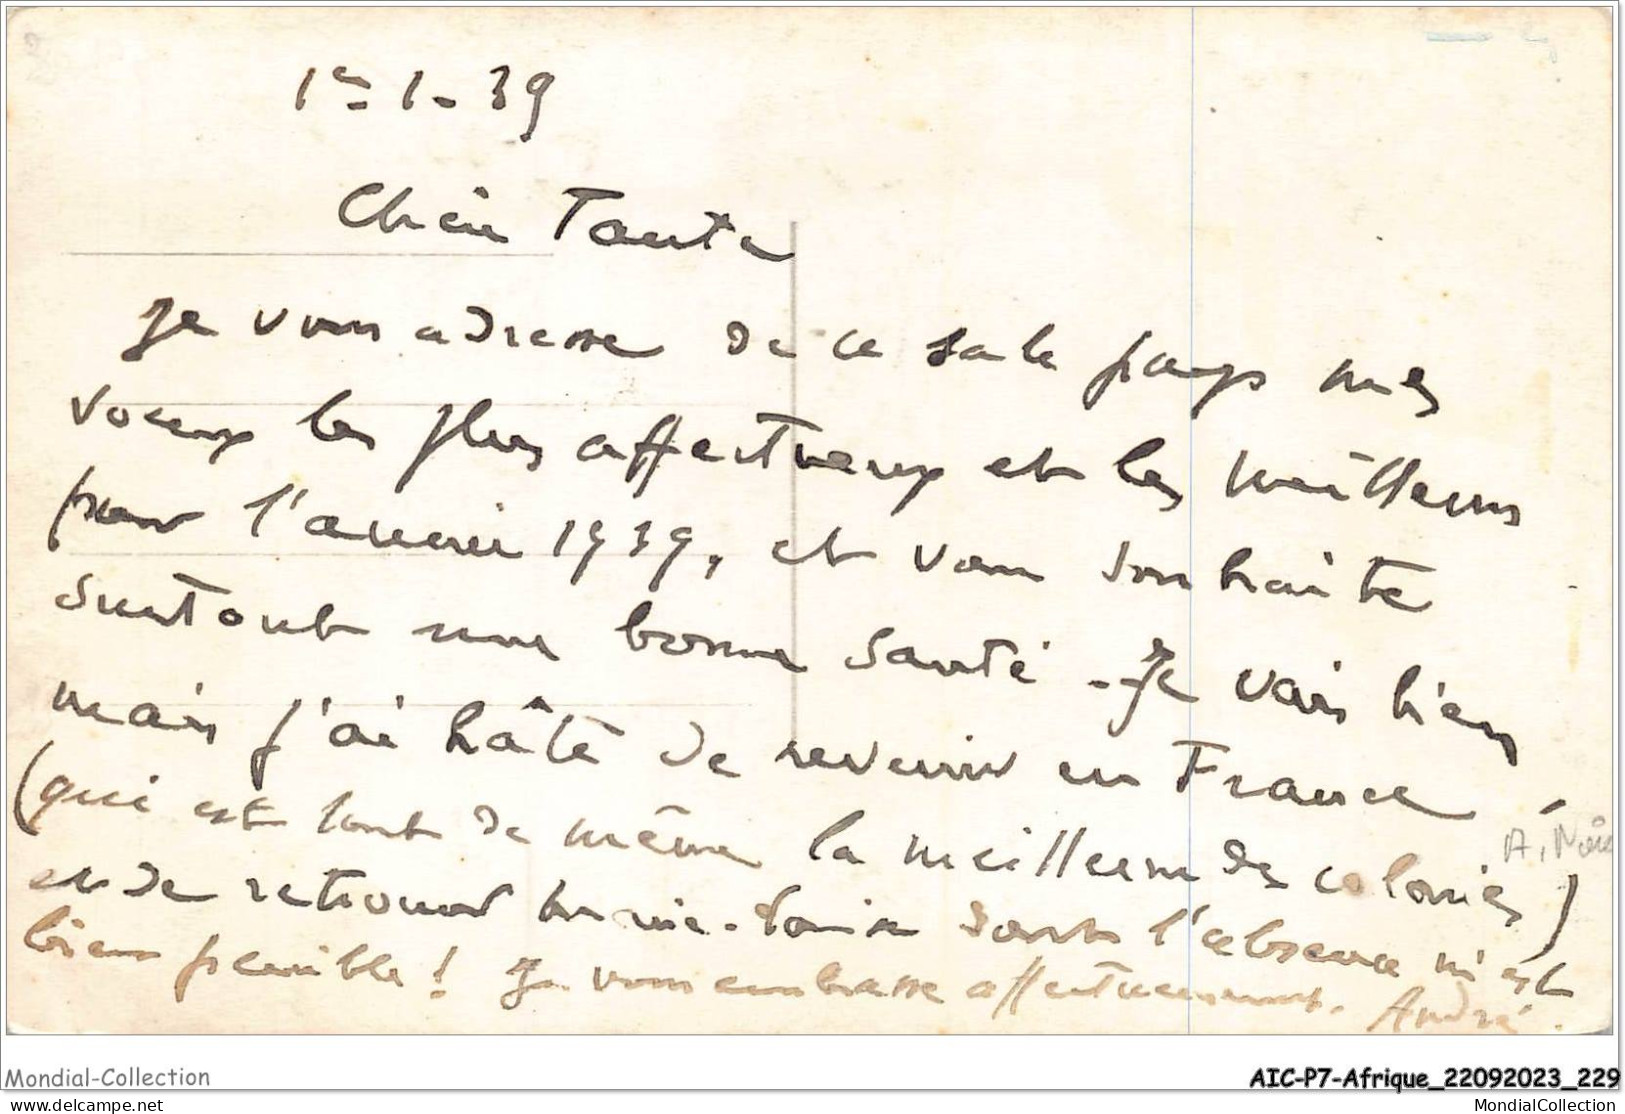 1er - 1 - 39
Chère Tante
Je vous adresse de ce sale pays mes
voeux les plus affectueux et les meilleurs
pour l'année 1939, et vous souhaite
surtout une bonne santé - Je vais bien
mais j'ai hâte de revenir en France
(qui est tout de même la meilleure des colonies)
et de retrouver dont l'absence m'est
bien pénible ! Je vous embrasse affectueusement. André.
Mondial-Collection
AIC-P7-Afrique_22092023_229
delcampe.net
MondialCollection